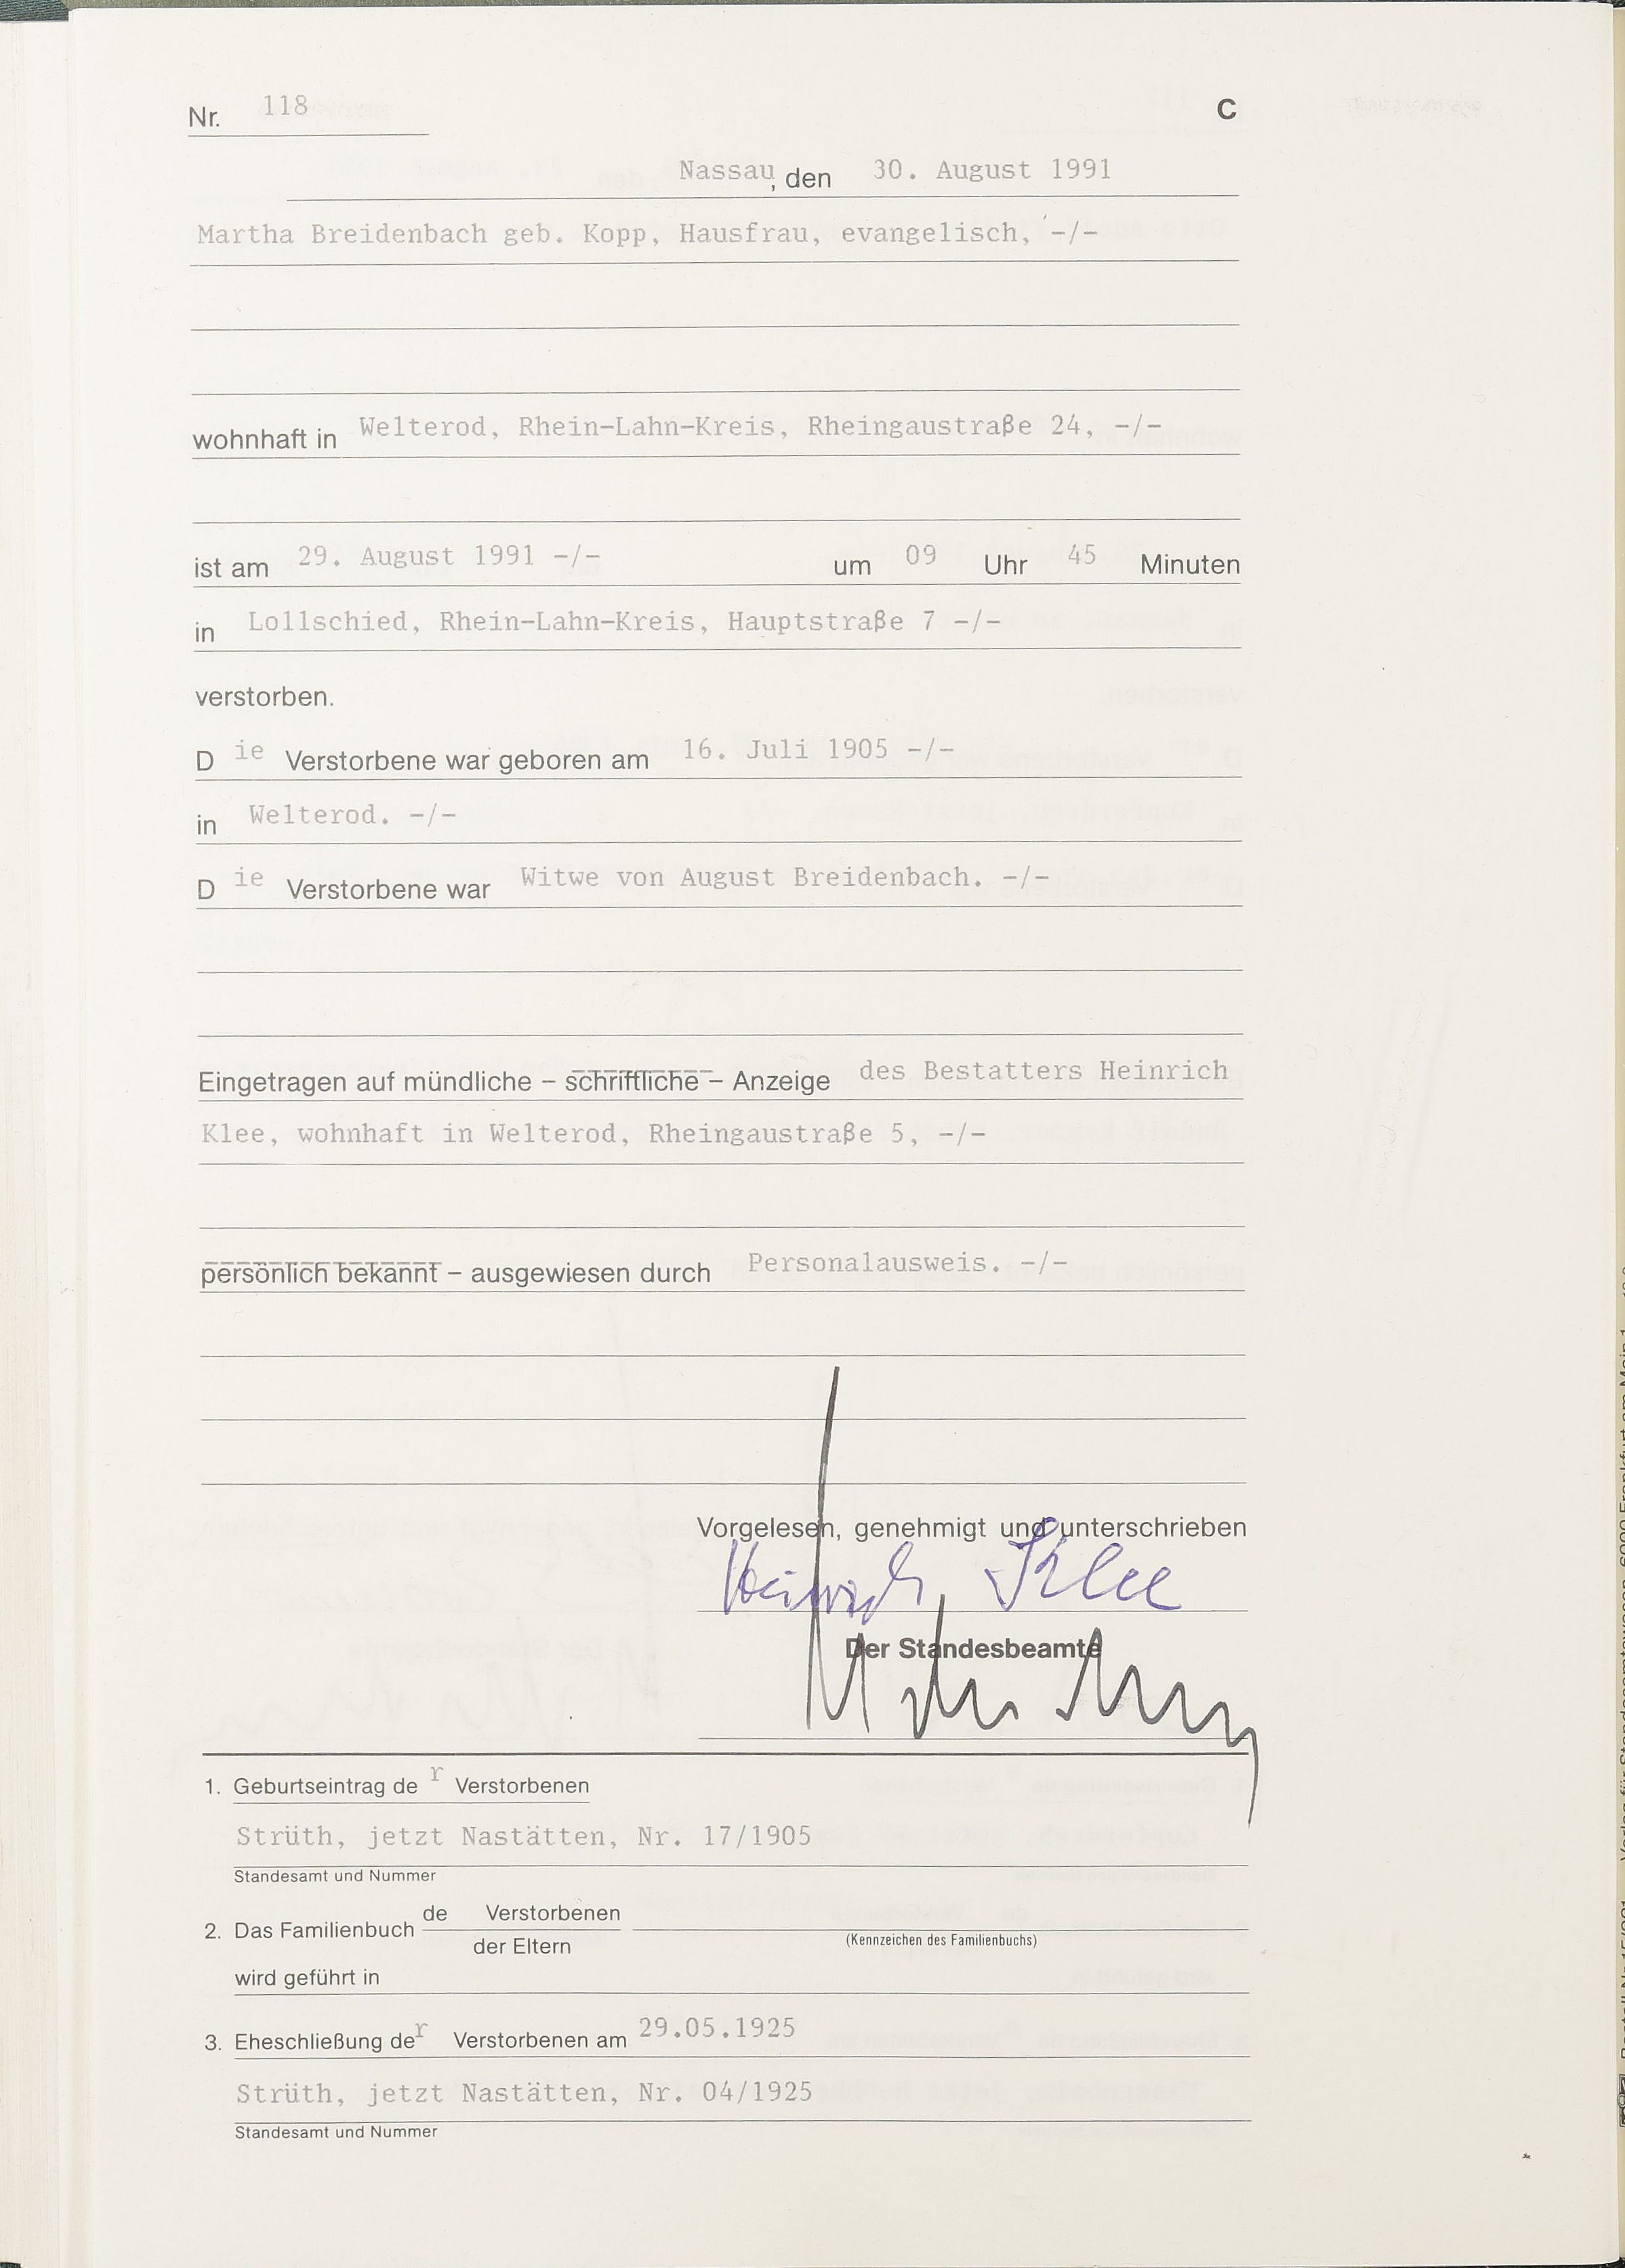 Nr. 118
C
Nassau, den 30. August 1991
Martha Breidenbach geb. Kopp, Hausfrau, evangelisch, -/-
wohnhaft in Welterod, Rhein-Lahn-Kreis, Rheingaustraße 24, -/-
ist am 29. August 1991 -/- um 09 Uhr 45 Minuten
in Lollschied, Rhein-Lahn-Kreis, Hauptstraße 7 -/-
verstorben.
D ie Verstorbene war geboren am 16. Juli 1905 -/-
in Welterod. -/-
D ie Verstorbene war Witwe von August Breidenbach. -/-
Eingetragen auf mündliche – schriftliche – Anzeige des Bestatters Heinrich
Klee, wohnhaft in Welterod, Rheingaustraße 5, -/-
persönlich bekannt – ausgewiesen durch Personalausweis. -/-
Vorgelesen, genehmigt und unterschrieben
Heinrich Klee
Der Standesbeamte
1. Geburtseintrag de r Verstorbenen
Strüth, jetzt Nastätten, Nr. 17/1905
Standesamt und Nummer
2. Das Familienbuch de Verstorbenen
der Eltern
(Kennzeichen des Familienbuchs)
wird geführt in
3. Eheschließung der Verstorbenen am 29.05.1925
Strüth, jetzt Nastätten, Nr. 04/1925
Standesamt und Nummer